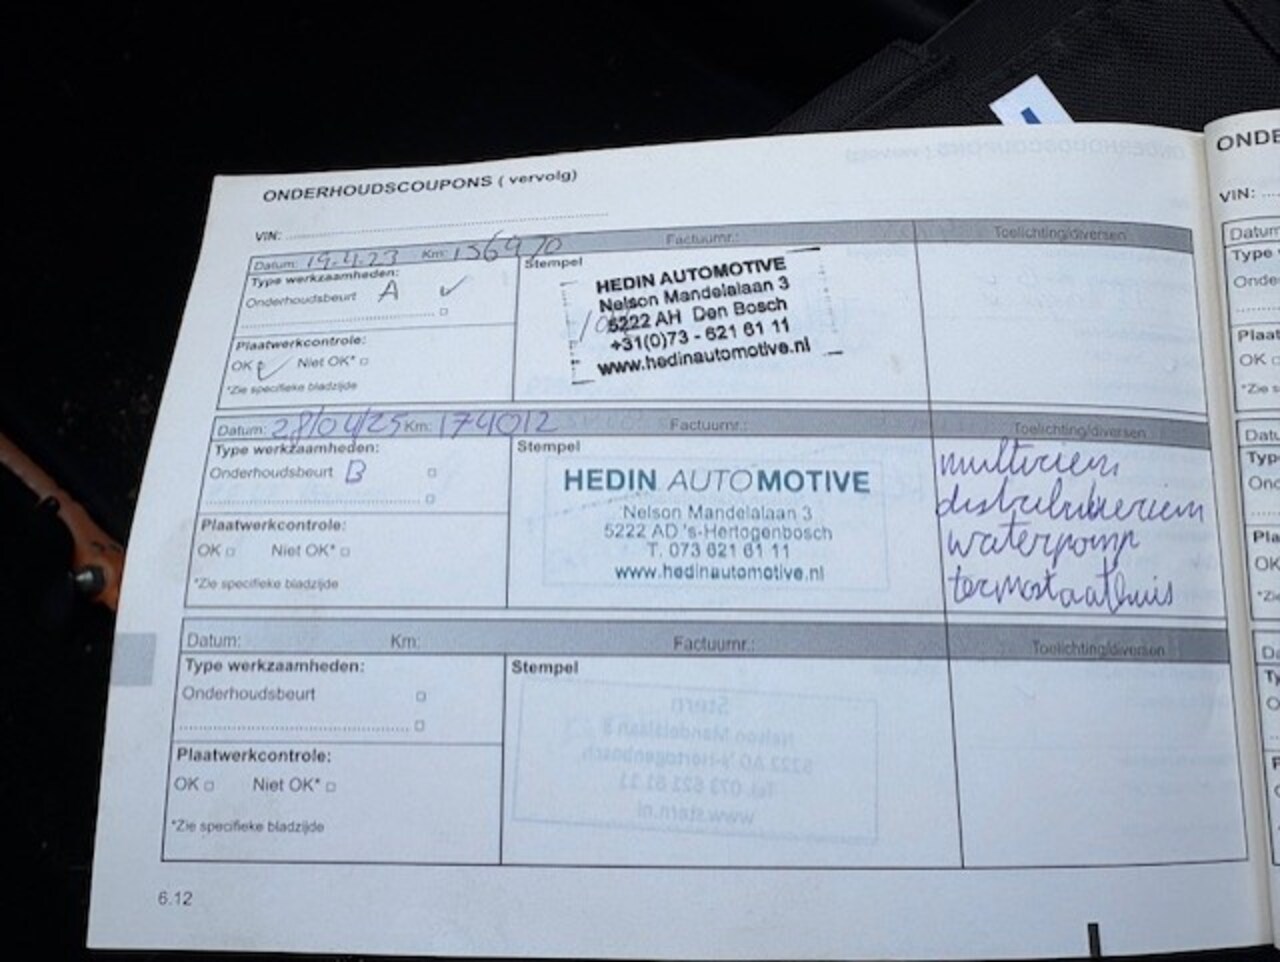 ONDERHOUDSCOUPONS ( vervolg)
VIN:
Datum: 19-4-23 Km: 156970 Factuurnr.: Toelichting/diversen
Type werkzaamheden:
Onderhoudsbeurt A ✓
Plaatwerkcontrole:
OK ✓ Niet OK*
*Zie specifieke bladzijde
Stempel
HEDIN AUTOMOTIVE
Nelson Mandelalaan 3
5222 AH Den Bosch
+31(0)73 - 621 61 11
www.hedinautomotive.nl
Datum: 28/04/25 Km: 174012 Factuurnr.: Toelichting/diversen
Type werkzaamheden:
Onderhoudsbeurt B
Plaatwerkcontrole:
OK Niet OK*
*Zie specifieke bladzijde
Stempel
HEDIN AUTOMOTIVE
Nelson Mandelalaan 3
5222 AD 's-Hertogenbosch
T. 073 621 61 11
www.hedinautomotive.nl
multiriem
distributieriem
waterpomp
termostaathuis
Datum: Km: Factuurnr.: Toelichting/diversen
Type werkzaamheden:
Onderhoudsbeurt
Plaatwerkcontrole:
OK Niet OK*
*Zie specifieke bladzijde
Stempel
6.12
ONDE
VIN: